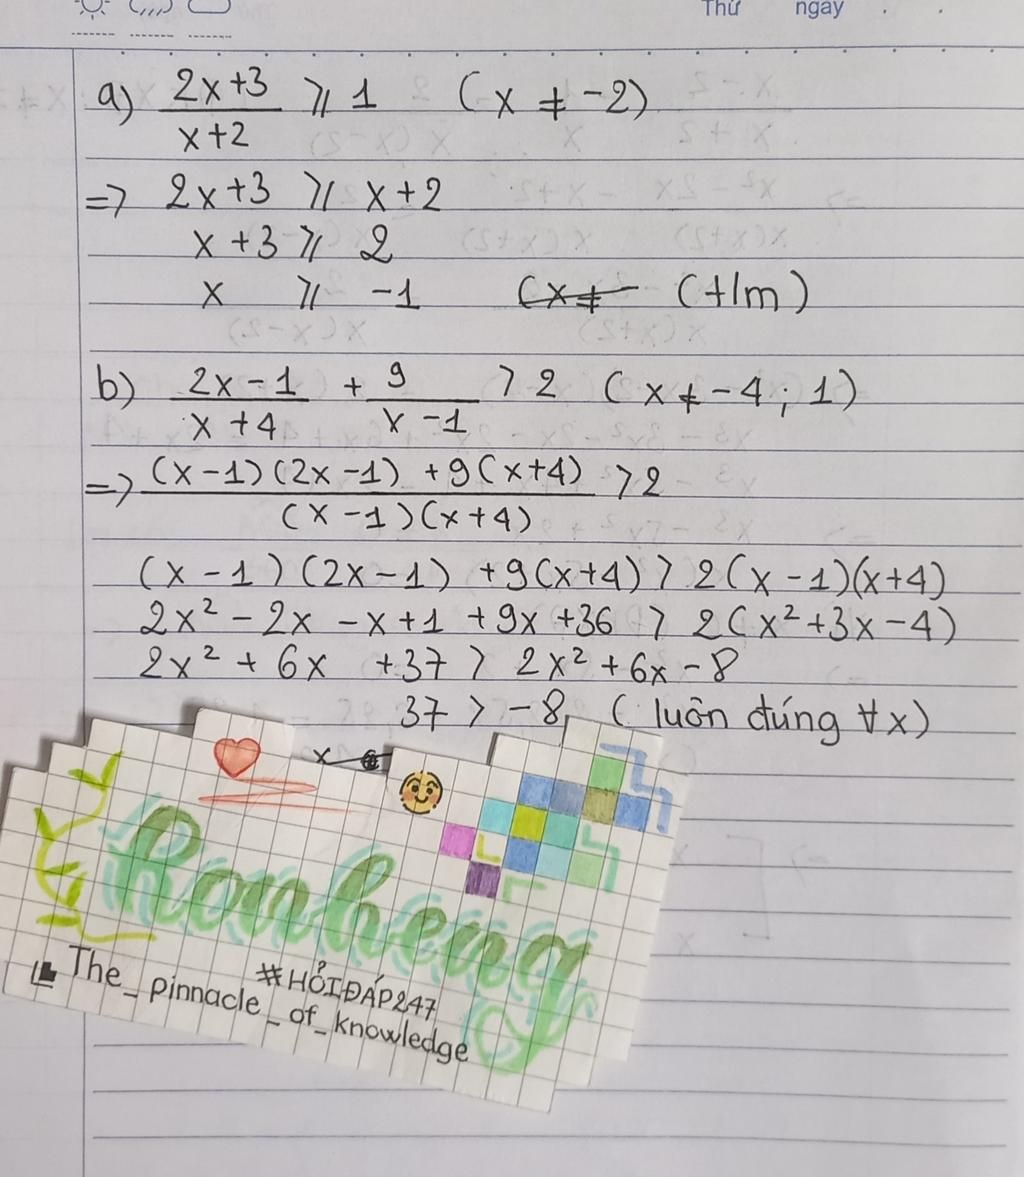 Thứ ngày
a) \frac{2x+3}{x+2} ⩾ 1 (x ≠ -2)
=> 2x+3 ⩾ x+2
x+3 ⩾ 2
x ⩾ -1 (x ≠ (t/m)
b) \frac{2x-1}{x+4} + \frac{9}{x-1} > 2 (x ≠ -4; 1)
=> \frac{(x-1)(2x-1)+9(x+4)}{(x-1)(x+4)} > 2
(x-1)(2x-1)+9(x+4) > 2(x-1)(x+4)
2x² - 2x - x+1 +9x +36 > 2(x²+3x-4)
2x² + 6x +37 > 2x² + 6x - 8
37 > -8 (luôn đúng ∀x)
x
Ronheng
#HỎIĐÁP247
The_pinnacle_of_knowledge